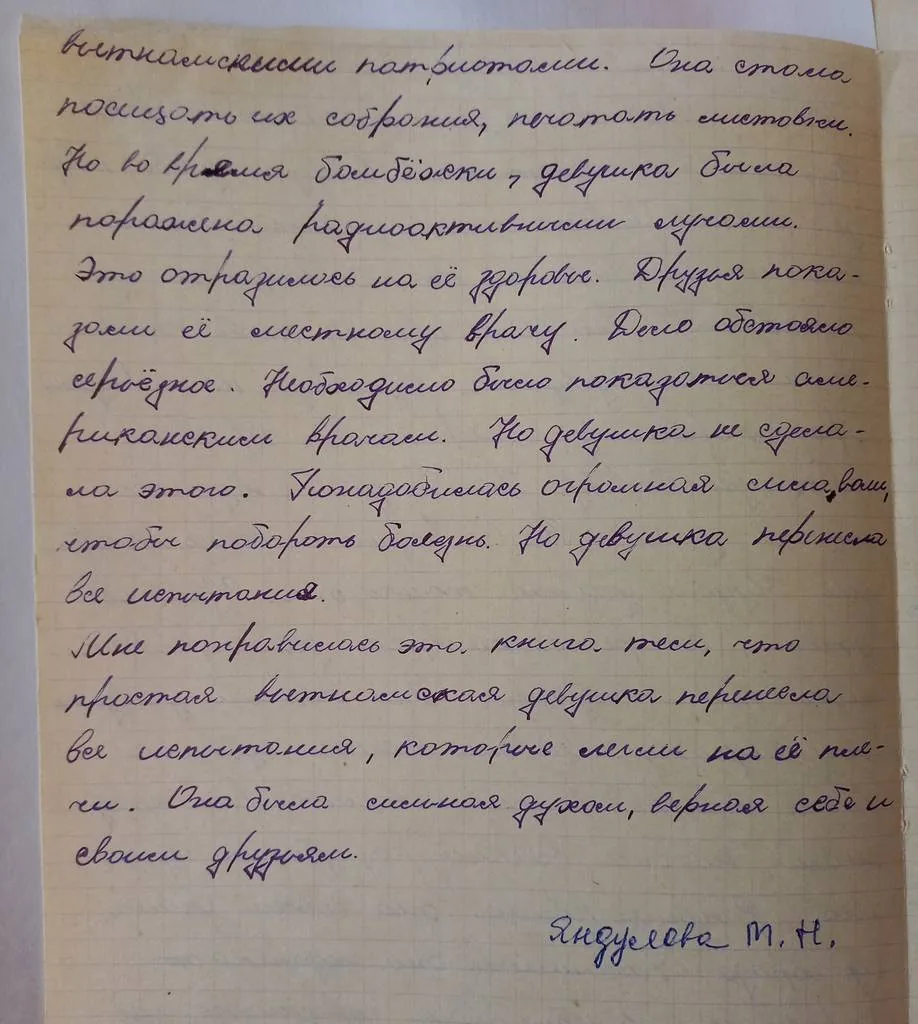 вьетнамскими патриотами. Она стала
посещать их собрания, печатать листовки.
Но во время бомбёжки, девушка была
поражена радиоактивными лучами.
Это отразилось на её здоровье. Друзья пока-
зали её местному врачу. Дело обстояло
серьёзное. Необходимо было показаться аме-
риканским врачам. Но девушка не сдела-
ла этого. Понадобилась огромная сила, воли,
чтобы побороть болезнь. Но девушка перенесла
все испытания.
Мне понравилась эта книга тем, что
простая вьетнамская девушка перенесла
все испытания, которые легли на её пле-
чи. Она была сильная духом, верная себе и
своим друзьям.
Яндулова М. Н.